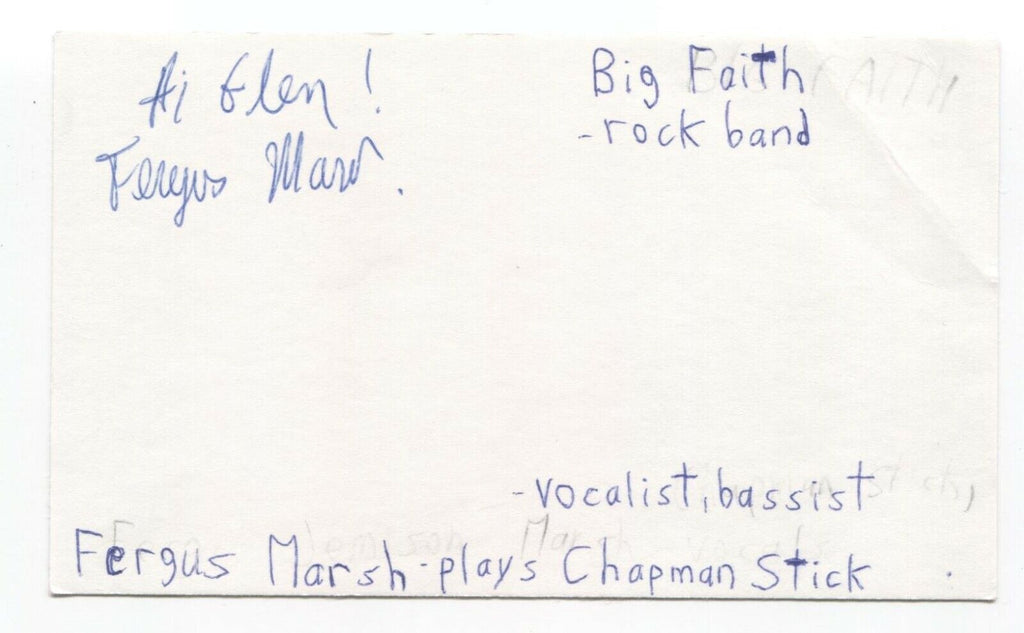 Hi Glen!
Fergus Marsh.
Big Faith
-rock band
BIG FAITH
-vocalist, bassist
Fergus Marsh-plays Chapman Stick
Marsh vocals